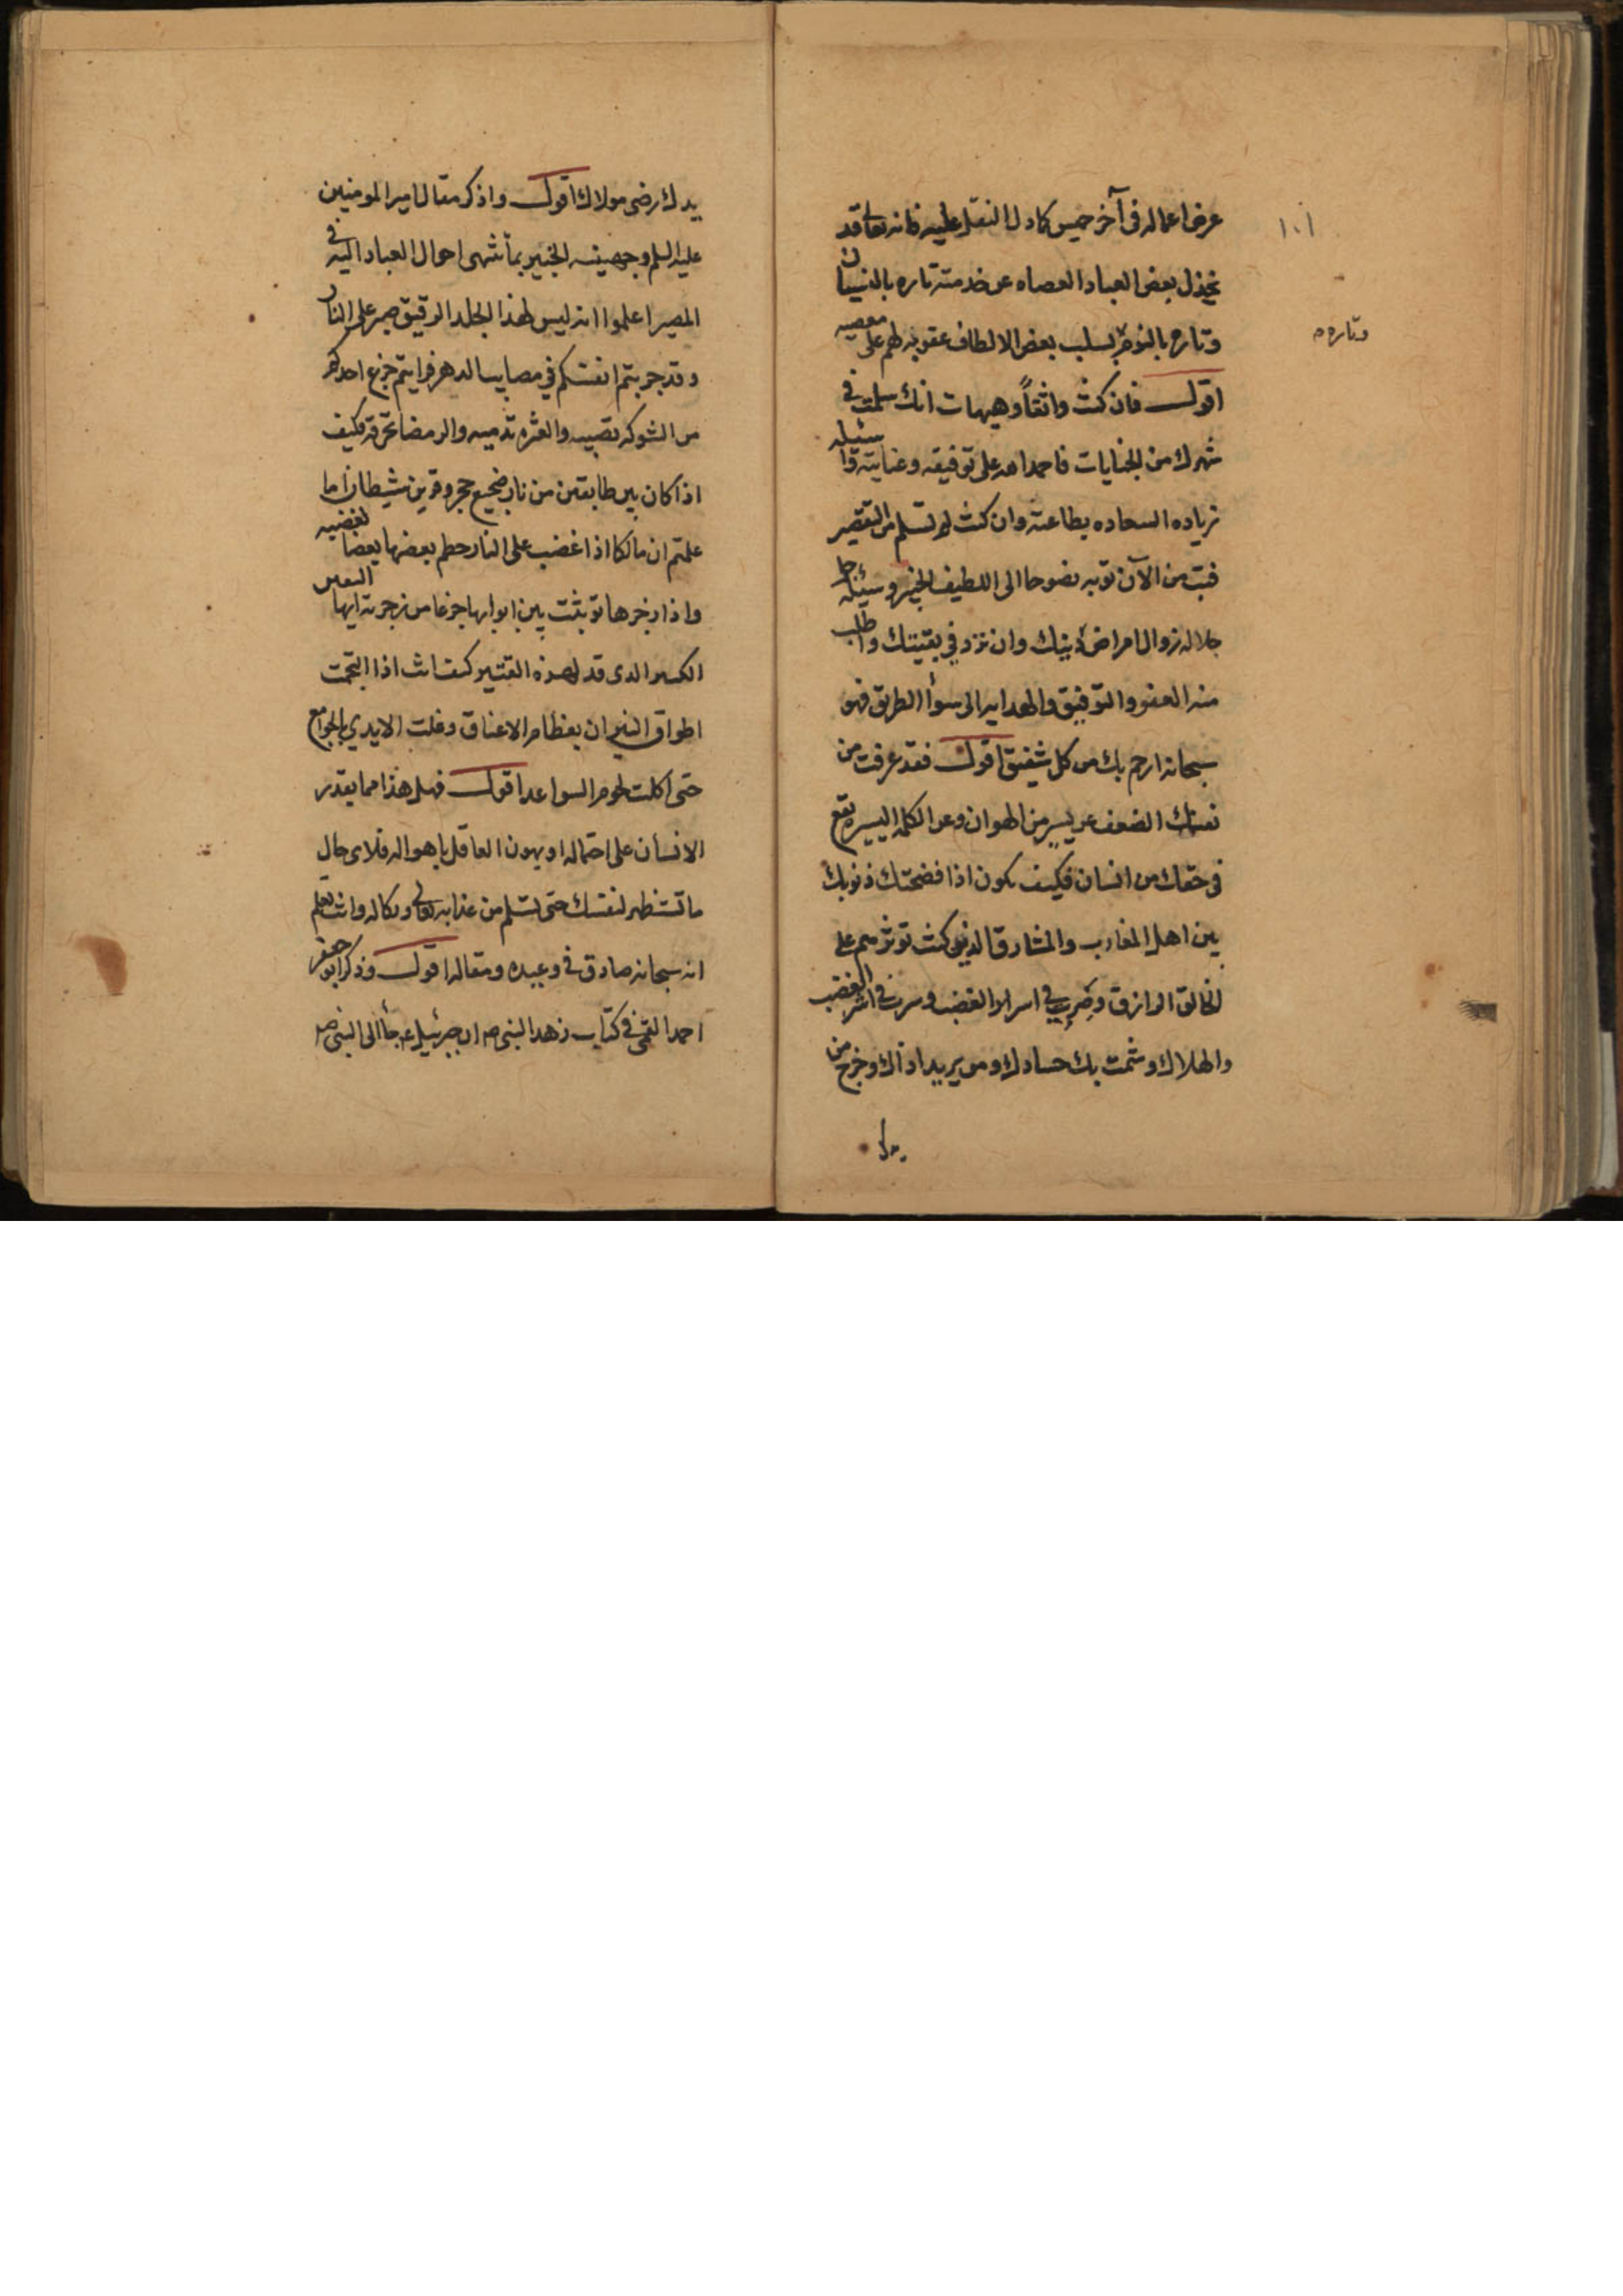 ١٠١
عرض اعماله فى آخر خميس كما دل النقل عليه فانه تعا قد
يخذل بعض العباد العصاه عن خدمته تاره بالنسيان
وتاره بالنوم بسلب بعض الالطاف عقوبه لهم على معصيه
وتاره م
اقول فان كنت واثقاً وهيهات انك سلمت فى
شهرك من الجنايات فاحمد الله على توفيقه وعنايته وا سئله
زياده السعاده بطاعته وان كنت لم تسلم من التقصير
فتب من الآن توبه نصوحا الى اللطيف الخبير وسئله جل
جلاله زوال امراض دينك وان تزد فى يقينك واطلب
منه العفو والتوفيق والهدايه الى سوأ الطريق فهو
سبحانه ارحم بك من كل شفيق اقول فقد عرفت من
نفسك الضعف عن يسير من الهوان وعن الكلمه اليسيره تقع
فى حقك من انسان فكيف يكون اذا فضحتك ذنوبك
بين اهل المغارب والمشارق الذين كنت توثرهم على
الخالق الرازق وصرت فى اسر الغضب
والهلاك وشمت بك حسادك ومن يريد اذاك وخرج من
يدك رضى مولاك اقول واذكر مقال امير المومنين
عليه السلم وجهينه الخبير بما تنتهى احوال العباد اليه فى
المصير اعلموا انه ليس لهذا الجلد الرقيق صبر على النار
وقد جربتم انفسكم فى مصايب الدهر فرايتم جزع احدكم
من الشوكه تصيبه والعثره تدميه والرمضا تحرقه فكيف
اذا كان بين طابقين من نار ضجيع حجر وقرين شيطان اما
علمتم ان مالكا اذا غضب على النار حطم بعضها بعضا لغضبه
واذا زجرها توثبت بين ابوابها جزعا من زجرته ايها اليفن
الكبير الذى قد لهزه القتير كيف انت اذا التحمت
اطواق النيران بعظام الاعناق وغلت الايدي بالجوامع
حتى اكلت لحوم السواعد اقول فهل هذا مما يقدر
الانسان على احتماله او يهون العاقل باهواله فلاى حال
ما تستظهر لنفسك حتى تسلم من عذابه تعالى ونكاله وانت تعلم
انه سبحانه صادق فى وعيده ومقاله اقول وذكر ابو جعفر
احمد القمى فى كتاب زهد النبى ص ان جبرئيل ع جأ الى النبى ص